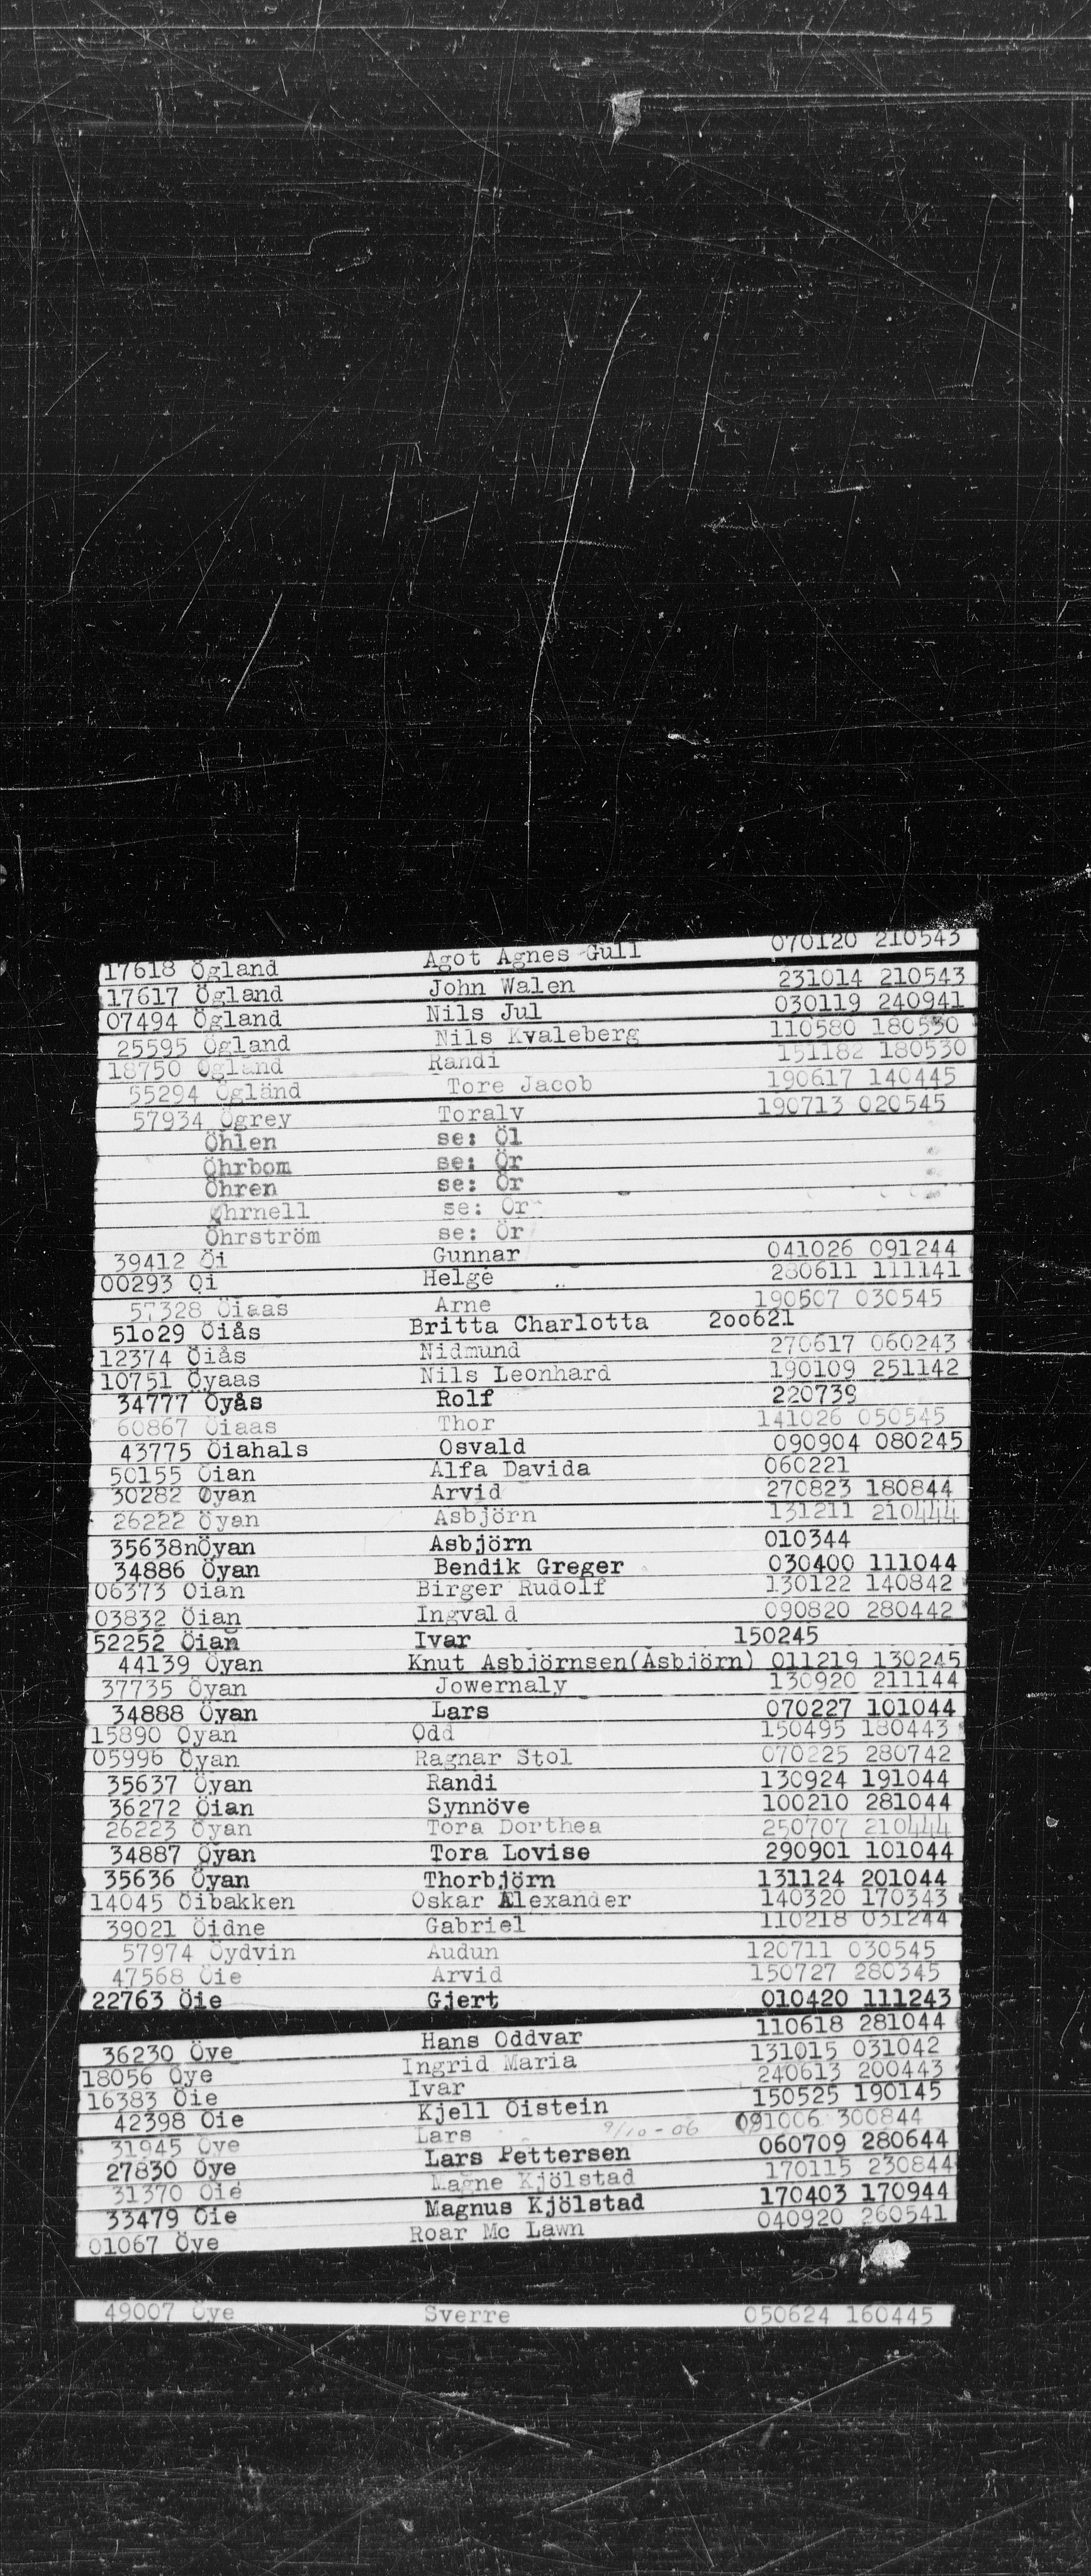 17618 Ögland Agot Agnes Gull 070120 210543
17617 Ögland John Walen 231014 210543
07494 Ögland Nils Jul 030119 240941
25595 Ögland Nils Kvaleberg 110580 180530
18750 Ögland Randi 151182 180530
55294 Ögländ Tore Jacob 190617 140445
57934 Ögrey Toralv 190713 020545
Öhlen se: Öl
Öhrbom se: Ör
Öhren se: Ör
Öhrnell se: Ör
Öhrström se: Ör
39412 Öi Gunnar 041026 091244
00293 Öi Helge 280611 111141
57328 Öiaas Arne 190507 030545
51o29 Öiås Britta Charlotta 2oo621
12374 Öiås Nidmund 270617 060243
10751 Öyaas Nils Leonhard 190109 251142
34777 Öyås Rolf 220739
60867 Öiaas Thor 141026 050545
43775 Öiahals Osvald 090904 080245
50155 Öian Alfa Davida 060221
30282 Øyan Arvid 270823 180844
26222 Öyan Asbjörn 131211 210444
35638nÖyan Asbjörn 010344
34886 Öyan Bendik Greger 030400 111044
06373 Öian Birger Rudolf 130122 140842
03832 Öian Ingvald 090820 280442
52252 Öian Ivar 150245
44139 Öyan Knut Asbjörnsen(Asbjörn) 011219 130245
37735 Öyan Jowernaly 130920 211144
34888 Öyan Lars 070227 101044
15890 Öyan Odd 150495 180443
05996 Öyan Ragnar Stol 070225 280742
35637 Öyan Randi 130924 191044
36272 Öian Synnöve 100210 281044
26223 Öyan Tora Dorthea 250707 210444
34887 Öyan Tora Lovise 290901 101044
35636 Öyan Thorbjörn 131124 201044
14045 Öibakken Oskar Alexander 140320 170343
39021 Öidne Gabriel 110218 031244
57974 Öydvin Audun 120711 030545
47568 Öie Arvid 150727 280345
22763 Öie Gjert 010420 111243
36230 Öye Hans Oddvar 110618 281044
18056 Öye Ingrid Maria 131015 031042
16383 Öie Ivar 240613 200443
42398 Öie Kjell Öistein 150525 190145
31945 Öye Lars 9/10-06 091006 300844
27830 Öye Lars Pettersen 060709 280644
31370 Öie Magne Kjölstad 170115 230844
33479 Öie Magnus Kjölstad 170403 170944
01067 Öye Roar Mc Lawn 040920 260541
49007 Öye Sverre 050624 160445